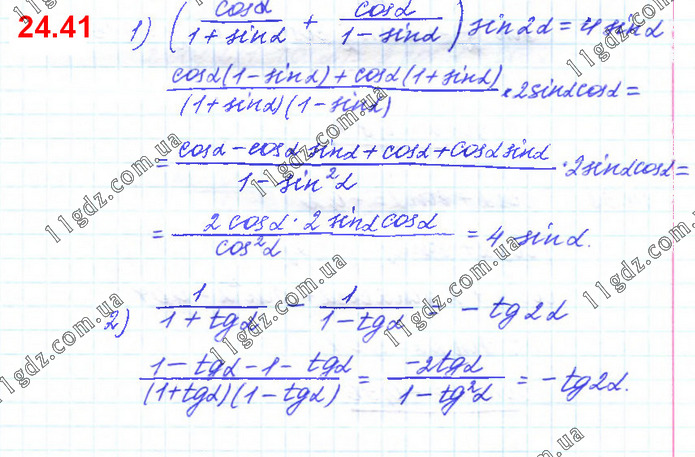 24.41
1) (cosα/(1+sinα) + cosα/(1-sinα)) sin2α = 4 sinα
(cosα(1-sinα)+cosα(1+sinα))/((1+sinα)(1-sinα)) · 2sinαcosα =
= (cosα-cosα sinα+cosα+cosα sinα)/(1-sin²α) · 2sinαcosα =
= (2 cosα · 2 sinα cosα)/(cos²α) = 4 sinα.
2) 1/(1+tgα) - 1/(1-tgα) = - tg2α
(1-tgα-1-tgα)/((1+tgα)(1-tgα)) = (-2tgα)/(1-tg²α) = -tg2α.
11gdz.com.ua
11gdz.com.ua
11gdz.com.ua
11gdz.com.ua
11gdz.com.ua
11gdz.com.ua